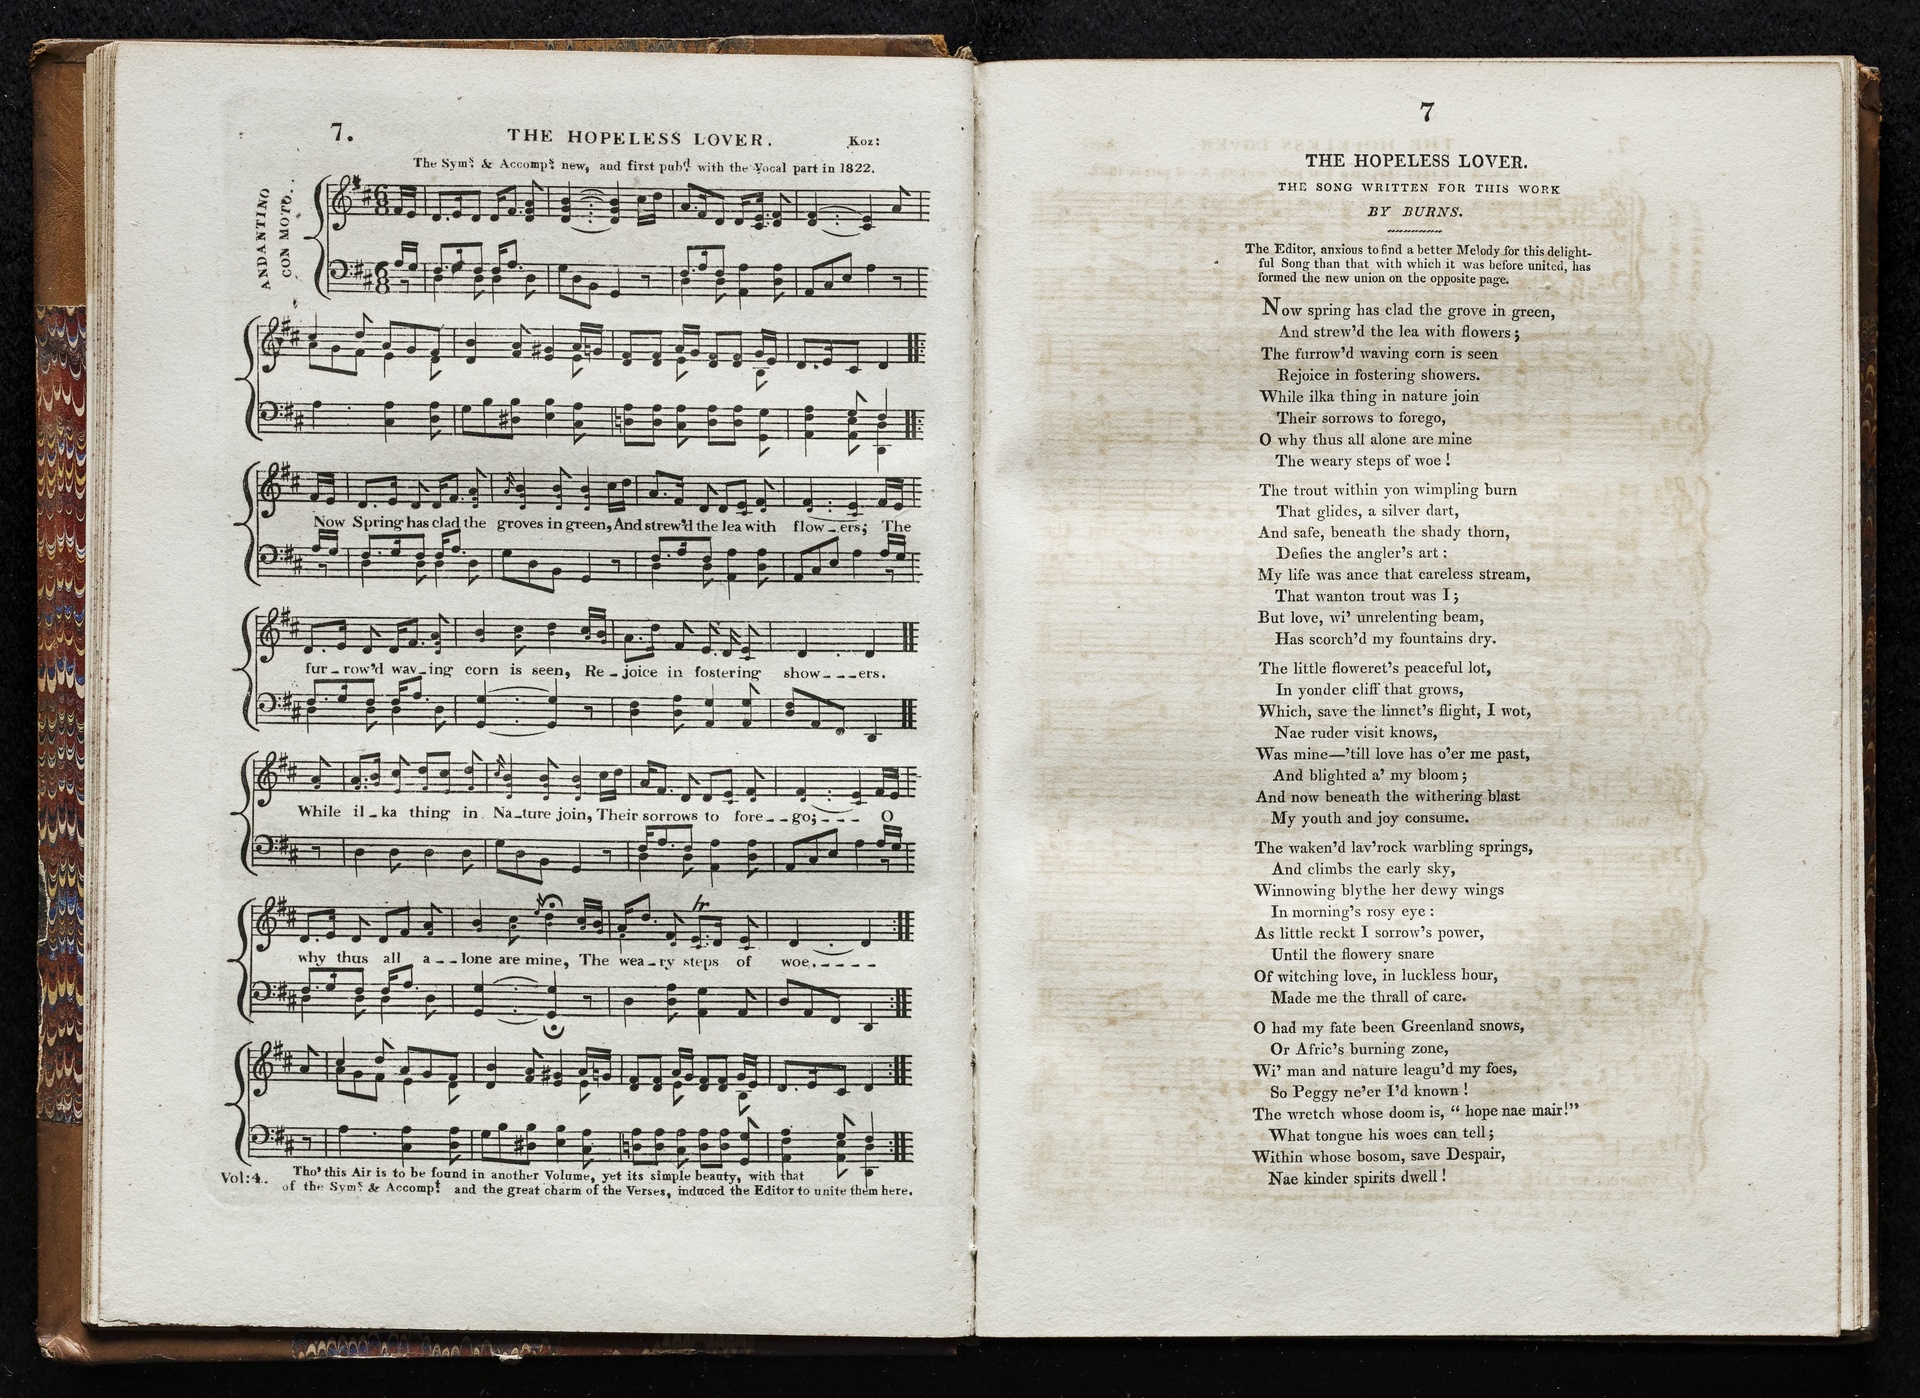 7.
THE HOPELESS LOVER.
Koz:
The Symˢ & Accompˢ new, and first pubᵈ with the Vocal part in 1822.
ANDANTINO
CON MOTO.
Now Spring has clad the groves in green, And strew'd the lea with flow_ers; The
fur_row'd wav_ing corn is seen, Re_joice in fostering show___ers.
While il_ka thing in Na_ture join, Their sorrows to fore__go;___ O
tr
why thus all a__lone are mine, The wea_ry steps of woe.____
Vol:4.
Tho' this Air is to be found in another Volume, yet its simple beauty, with that
of the Symˢ & Accompᵗ and the great charm of the Verses, induced the Editor to unite them here.
7
THE HOPELESS LOVER.
THE SONG WRITTEN FOR THIS WORK
BY BURNS.
The Editor, anxious to find a better Melody for this delight-
ful Song than that with which it was before united, has
formed the new union on the opposite page.
Now spring has clad the grove in green,
And strew'd the lea with flowers;
The furrow'd waving corn is seen
Rejoice in fostering showers.
While ilka thing in nature join
Their sorrows to forego,
O why thus all alone are mine
The weary steps of woe!
The trout within yon wimpling burn
That glides, a silver dart,
And safe, beneath the shady thorn,
Defies the angler's art:
My life was ance that careless stream,
That wanton trout was I;
But love, wi' unrelenting beam,
Has scorch'd my fountains dry.
The little floweret's peaceful lot,
In yonder cliff that grows,
Which, save the linnet's flight, I wot,
Nae ruder visit knows,
Was mine—'till love has o'er me past,
And blighted a' my bloom;
And now beneath the withering blast
My youth and joy consume.
The waken'd lav'rock warbling springs,
And climbs the early sky,
Winnowing blythe her dewy wings
In morning's rosy eye:
As little reckt I sorrow's power,
Until the flowery snare
Of witching love, in luckless hour,
Made me the thrall of care.
O had my fate been Greenland snows,
Or Afric's burning zone,
Wi' man and nature leagu'd my foes,
So Peggy ne'er I'd known!
The wretch whose doom is, “hope nae mair!”
What tongue his woes can tell;
Within whose bosom, save Despair,
Nae kinder spirits dwell!